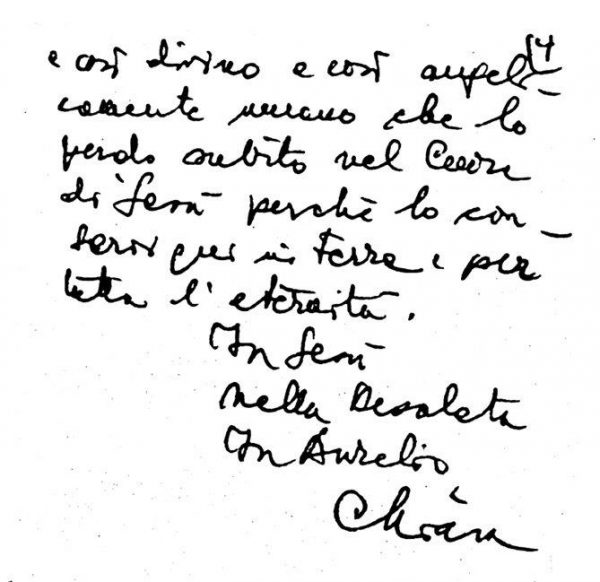 14
e così divino e così angeli-
camente umano che lo
perdo subito nel Cuore
di Gesù perchè lo con-
servi qui in terra e per
tutta l'eternità.
In Gesù
nella Desolata
In Aurelio
Chiara